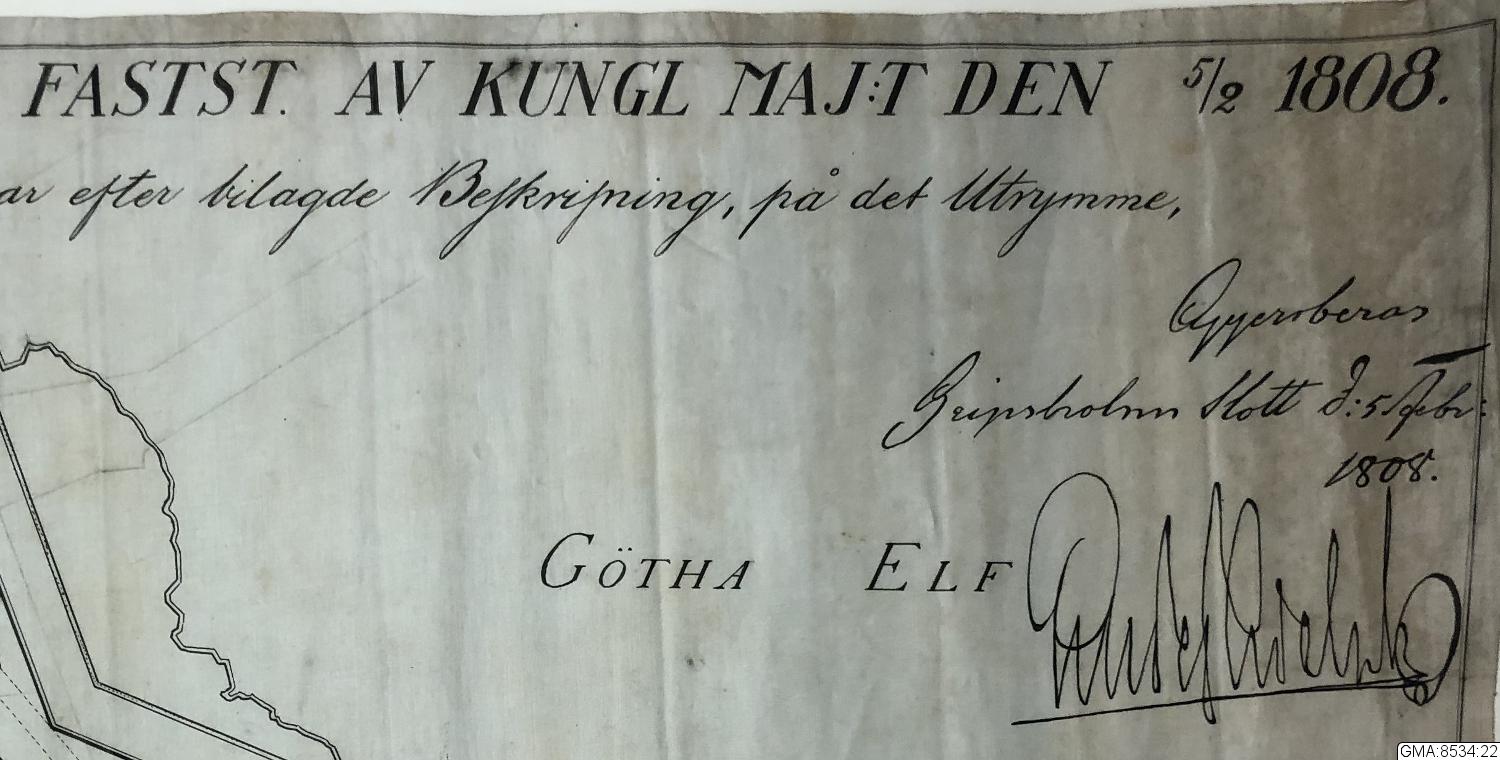 FASTST. AV KUNGL MAJ:T DEN 5/2 1808.
ar efter bilagde Beskrifning, på det Utrymme,
Gripsholms Slott d: 5 Febr:
1808.
GÖTHA ELF
GMA:8534:22